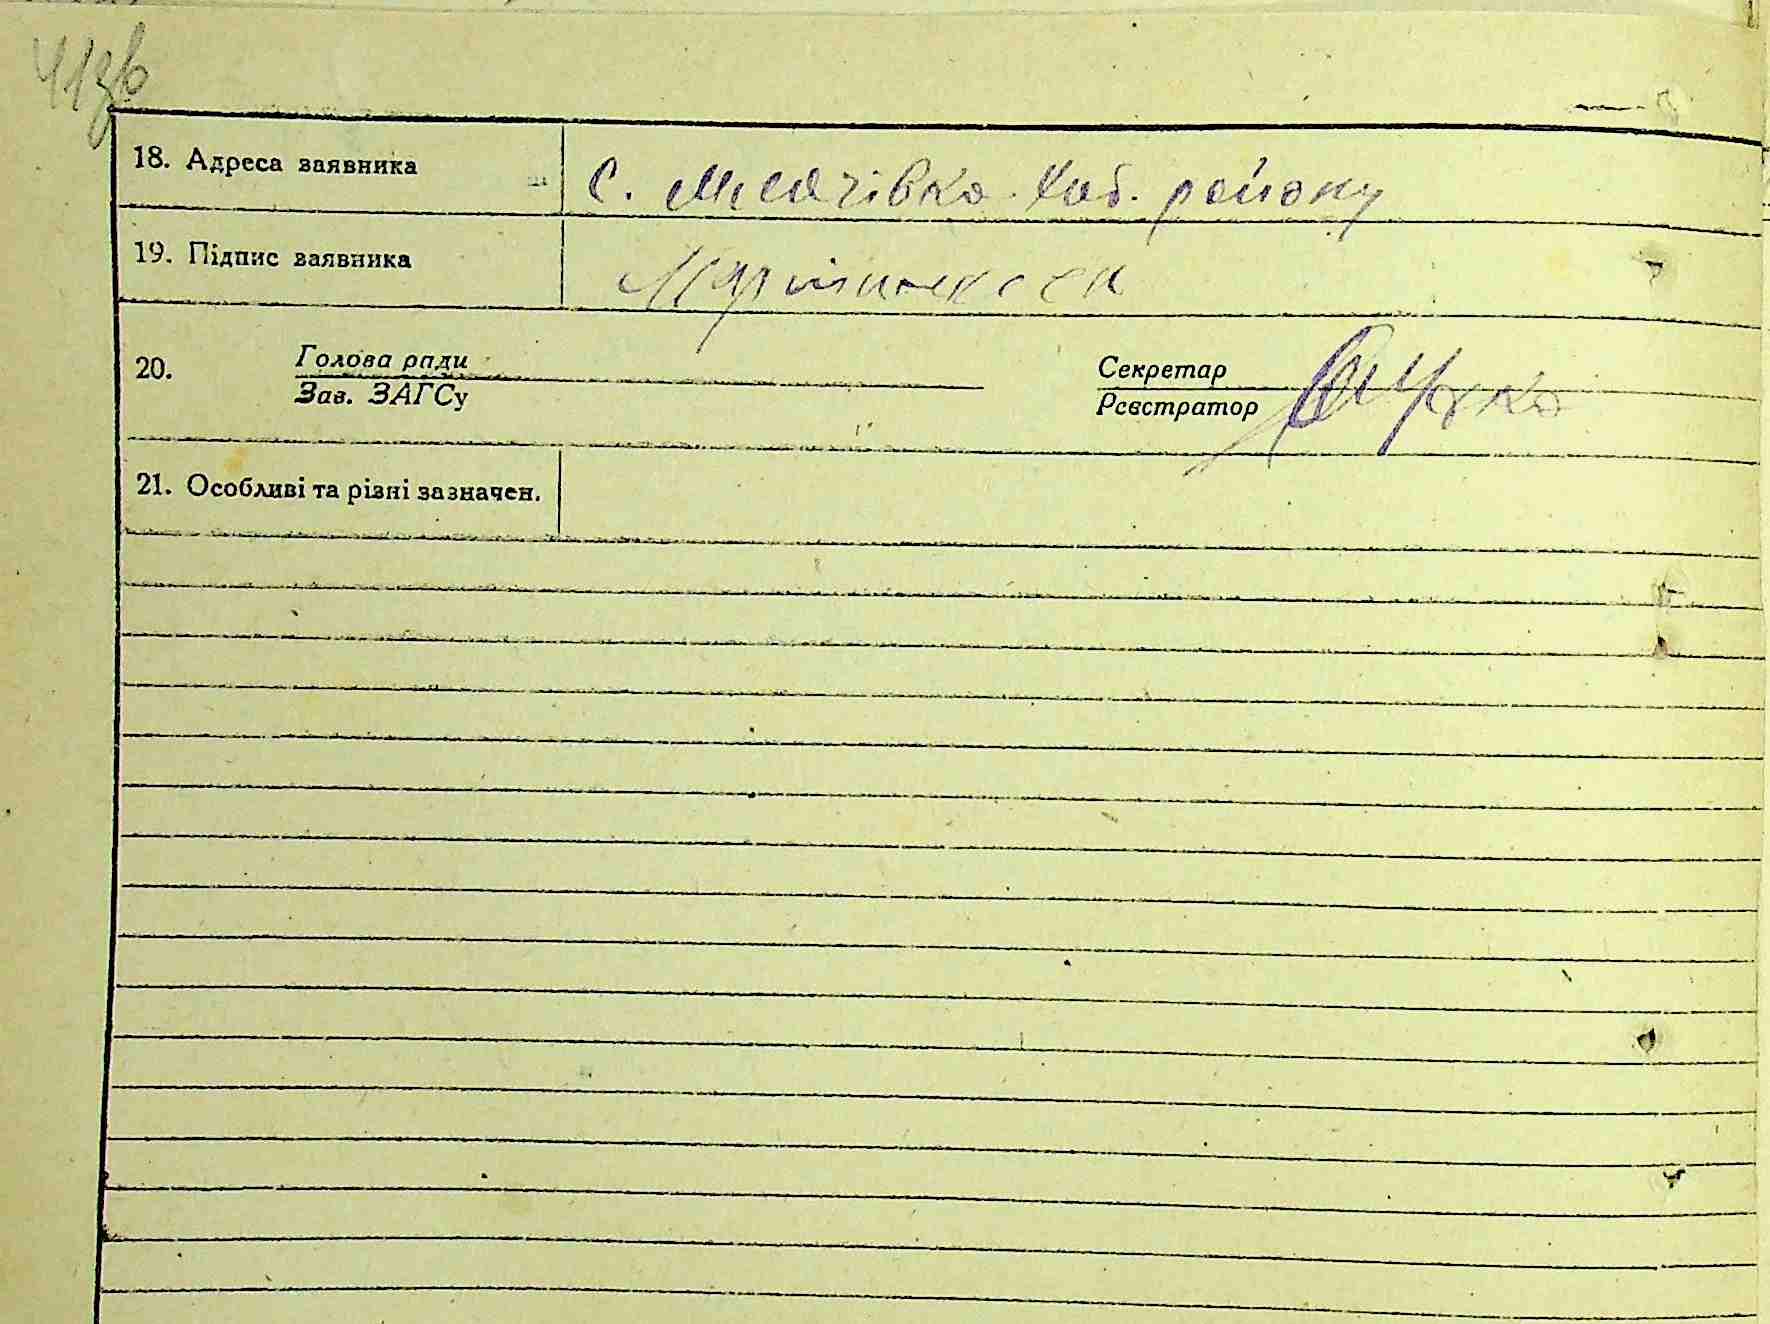 41зв
18. Адреса заявника с. Михачівка Хаб. району
19. Підпис заявника
20. Голова ради Секретар
Зав. ЗАГСу Реєстратор
21. Особливі та різні зазначен.